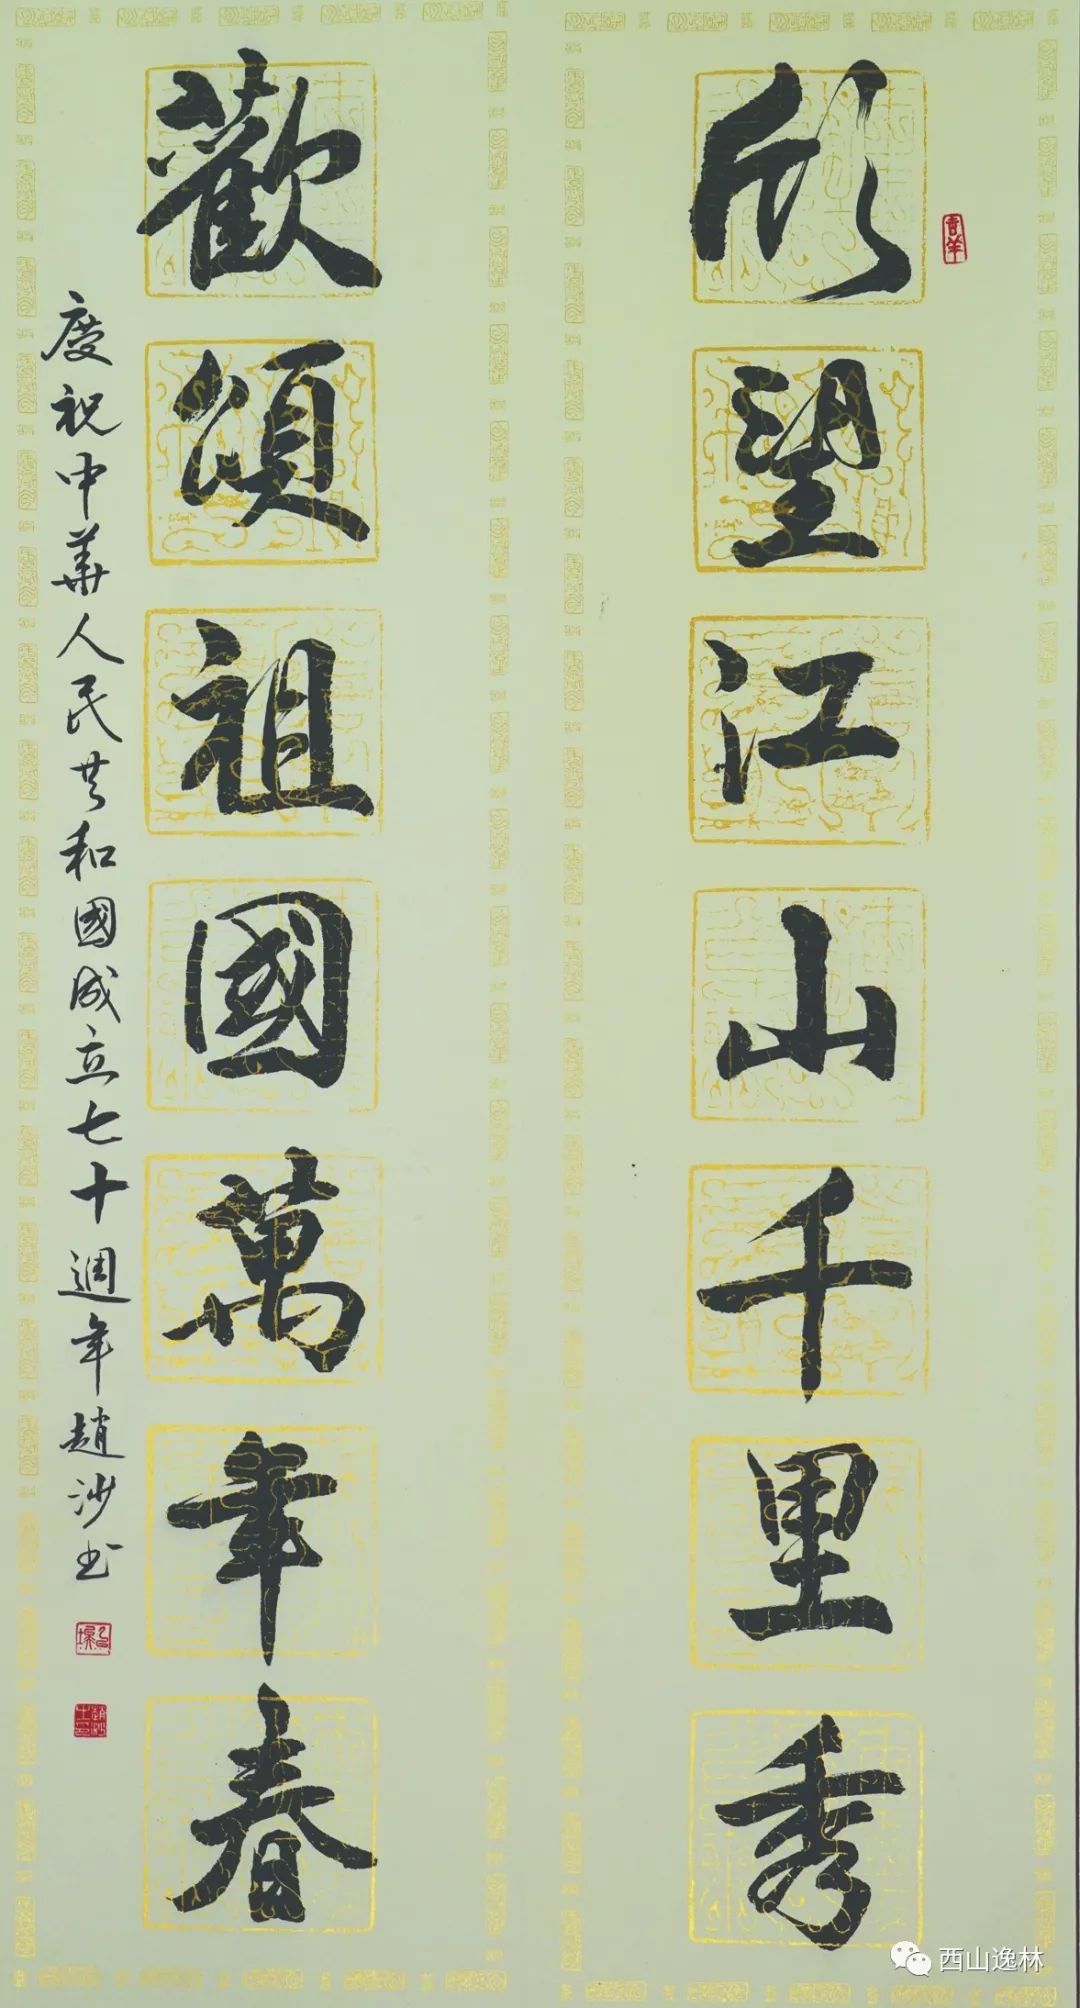 欣望江山千里秀
歡頌祖國萬年春
慶祝中華人民共和國成立七十週年趙沙书
西山逸林